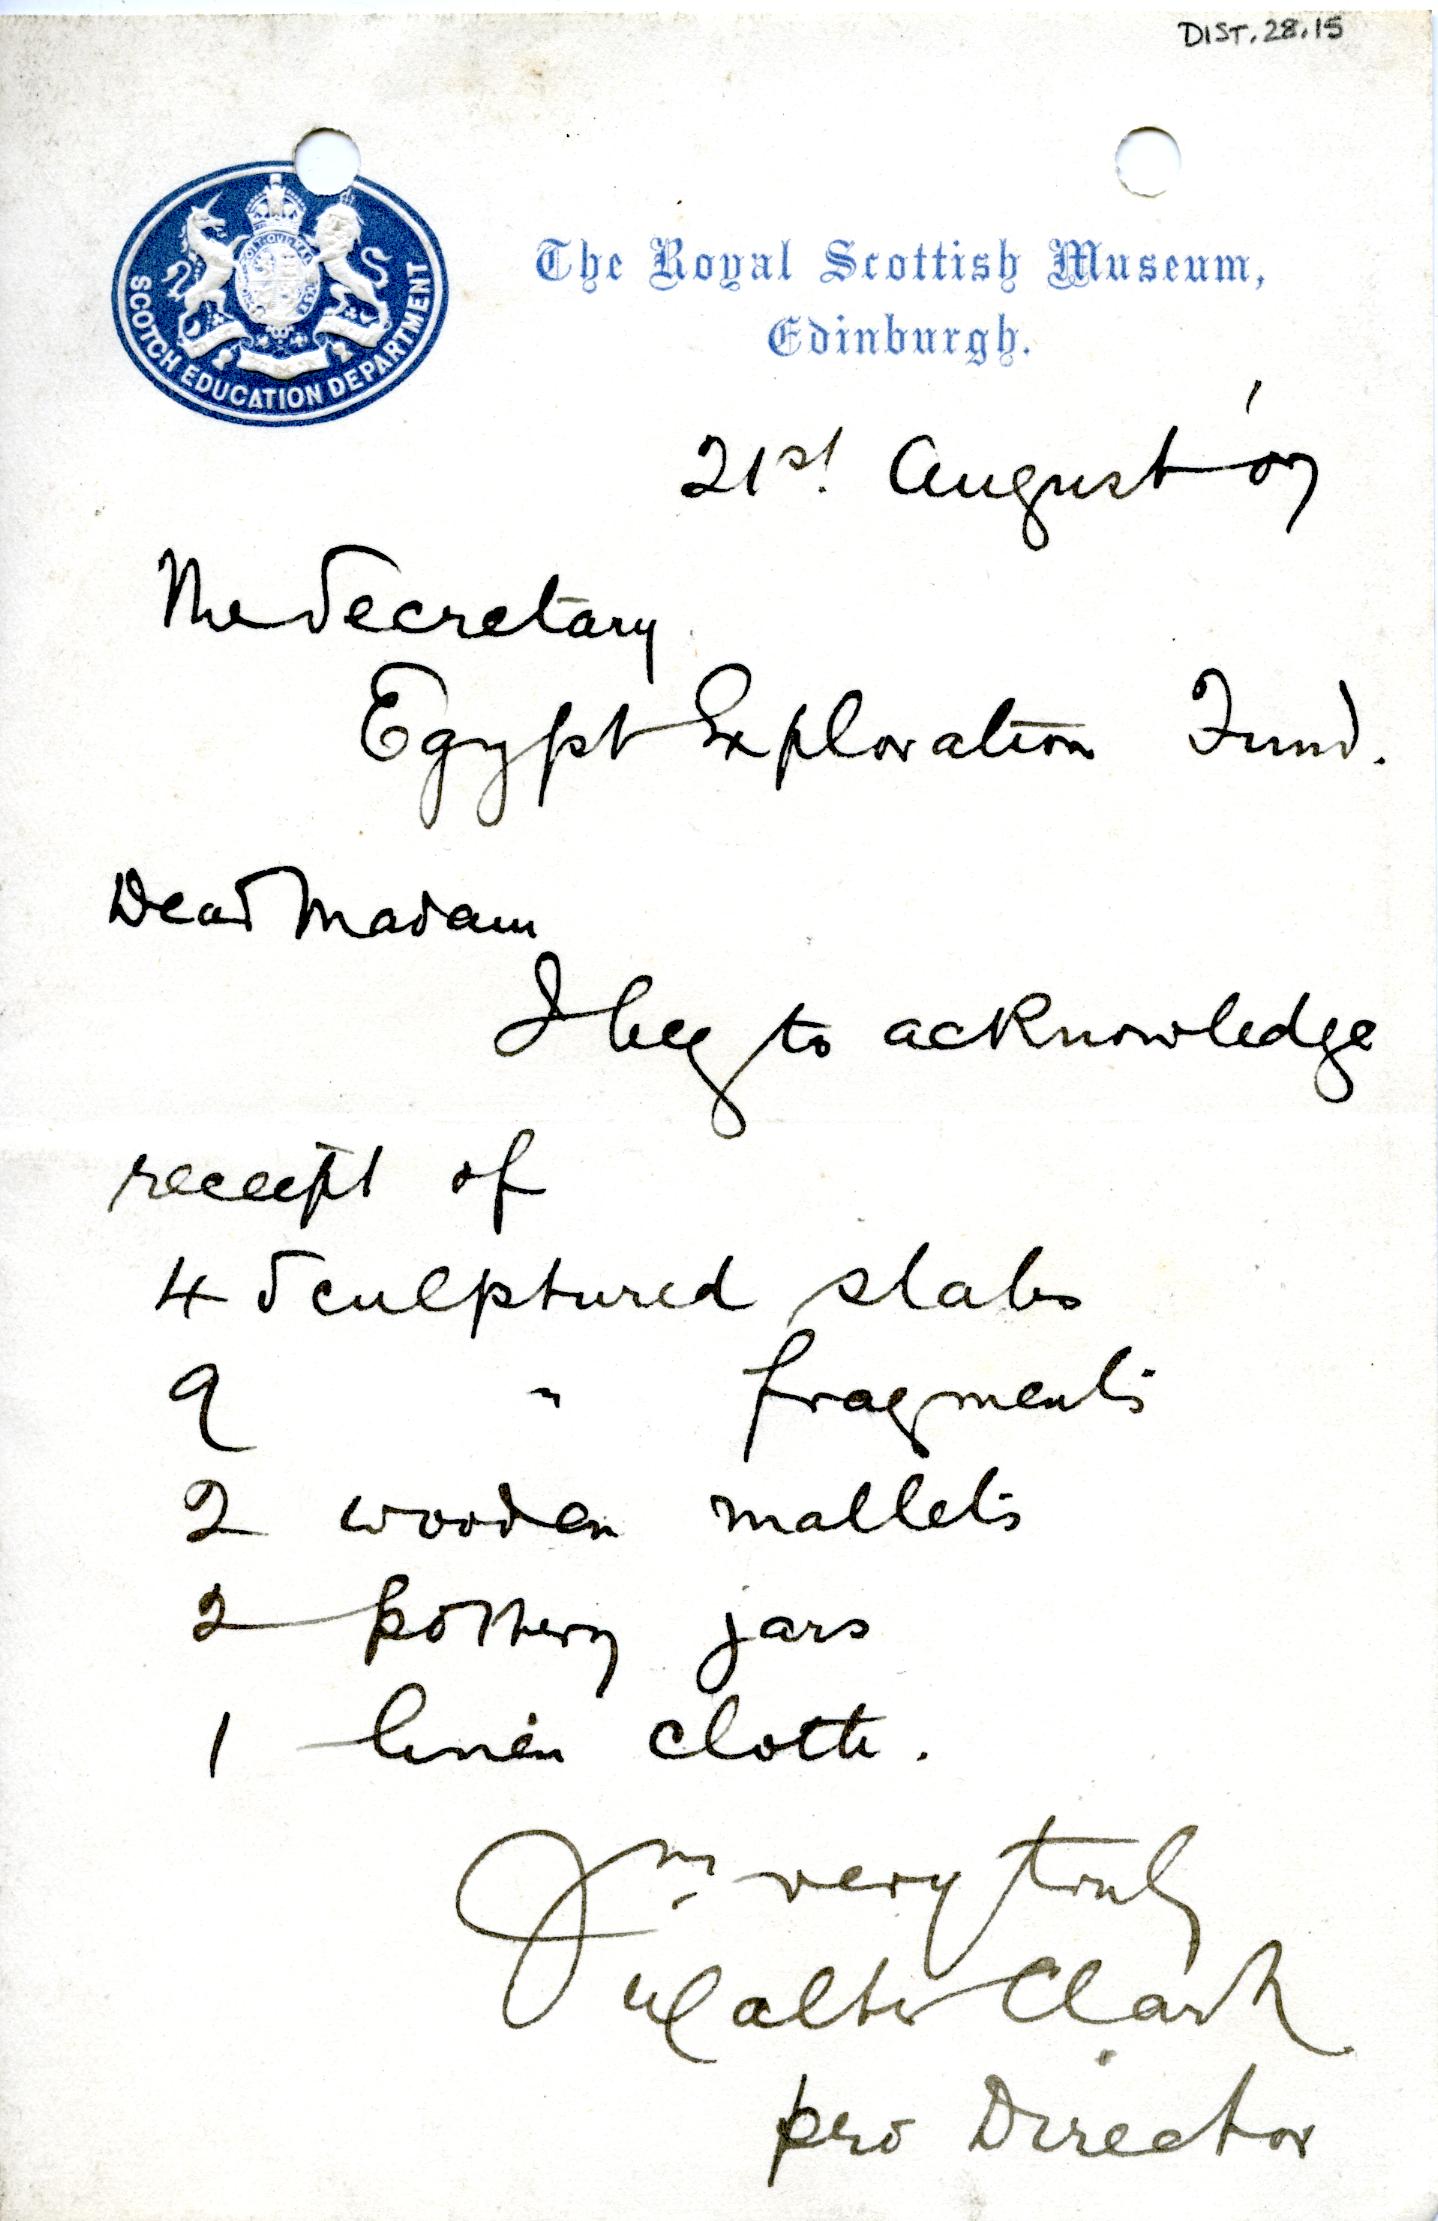 DIST. 28.15
SCOTCH EDUCATION DEPARTMENT
The Royal Scottish Museum,
Edinburgh.
21st. August '07
The Secretary
Egypt Exploration Fund.
Dear Madam
I beg to acknowledge
receipt of
4 Sculptured slabs
9 " fragments
2 wooden mallets
2 pottery jars
1 linen cloth.
Yrs very truly
Walter Clark
pro Director